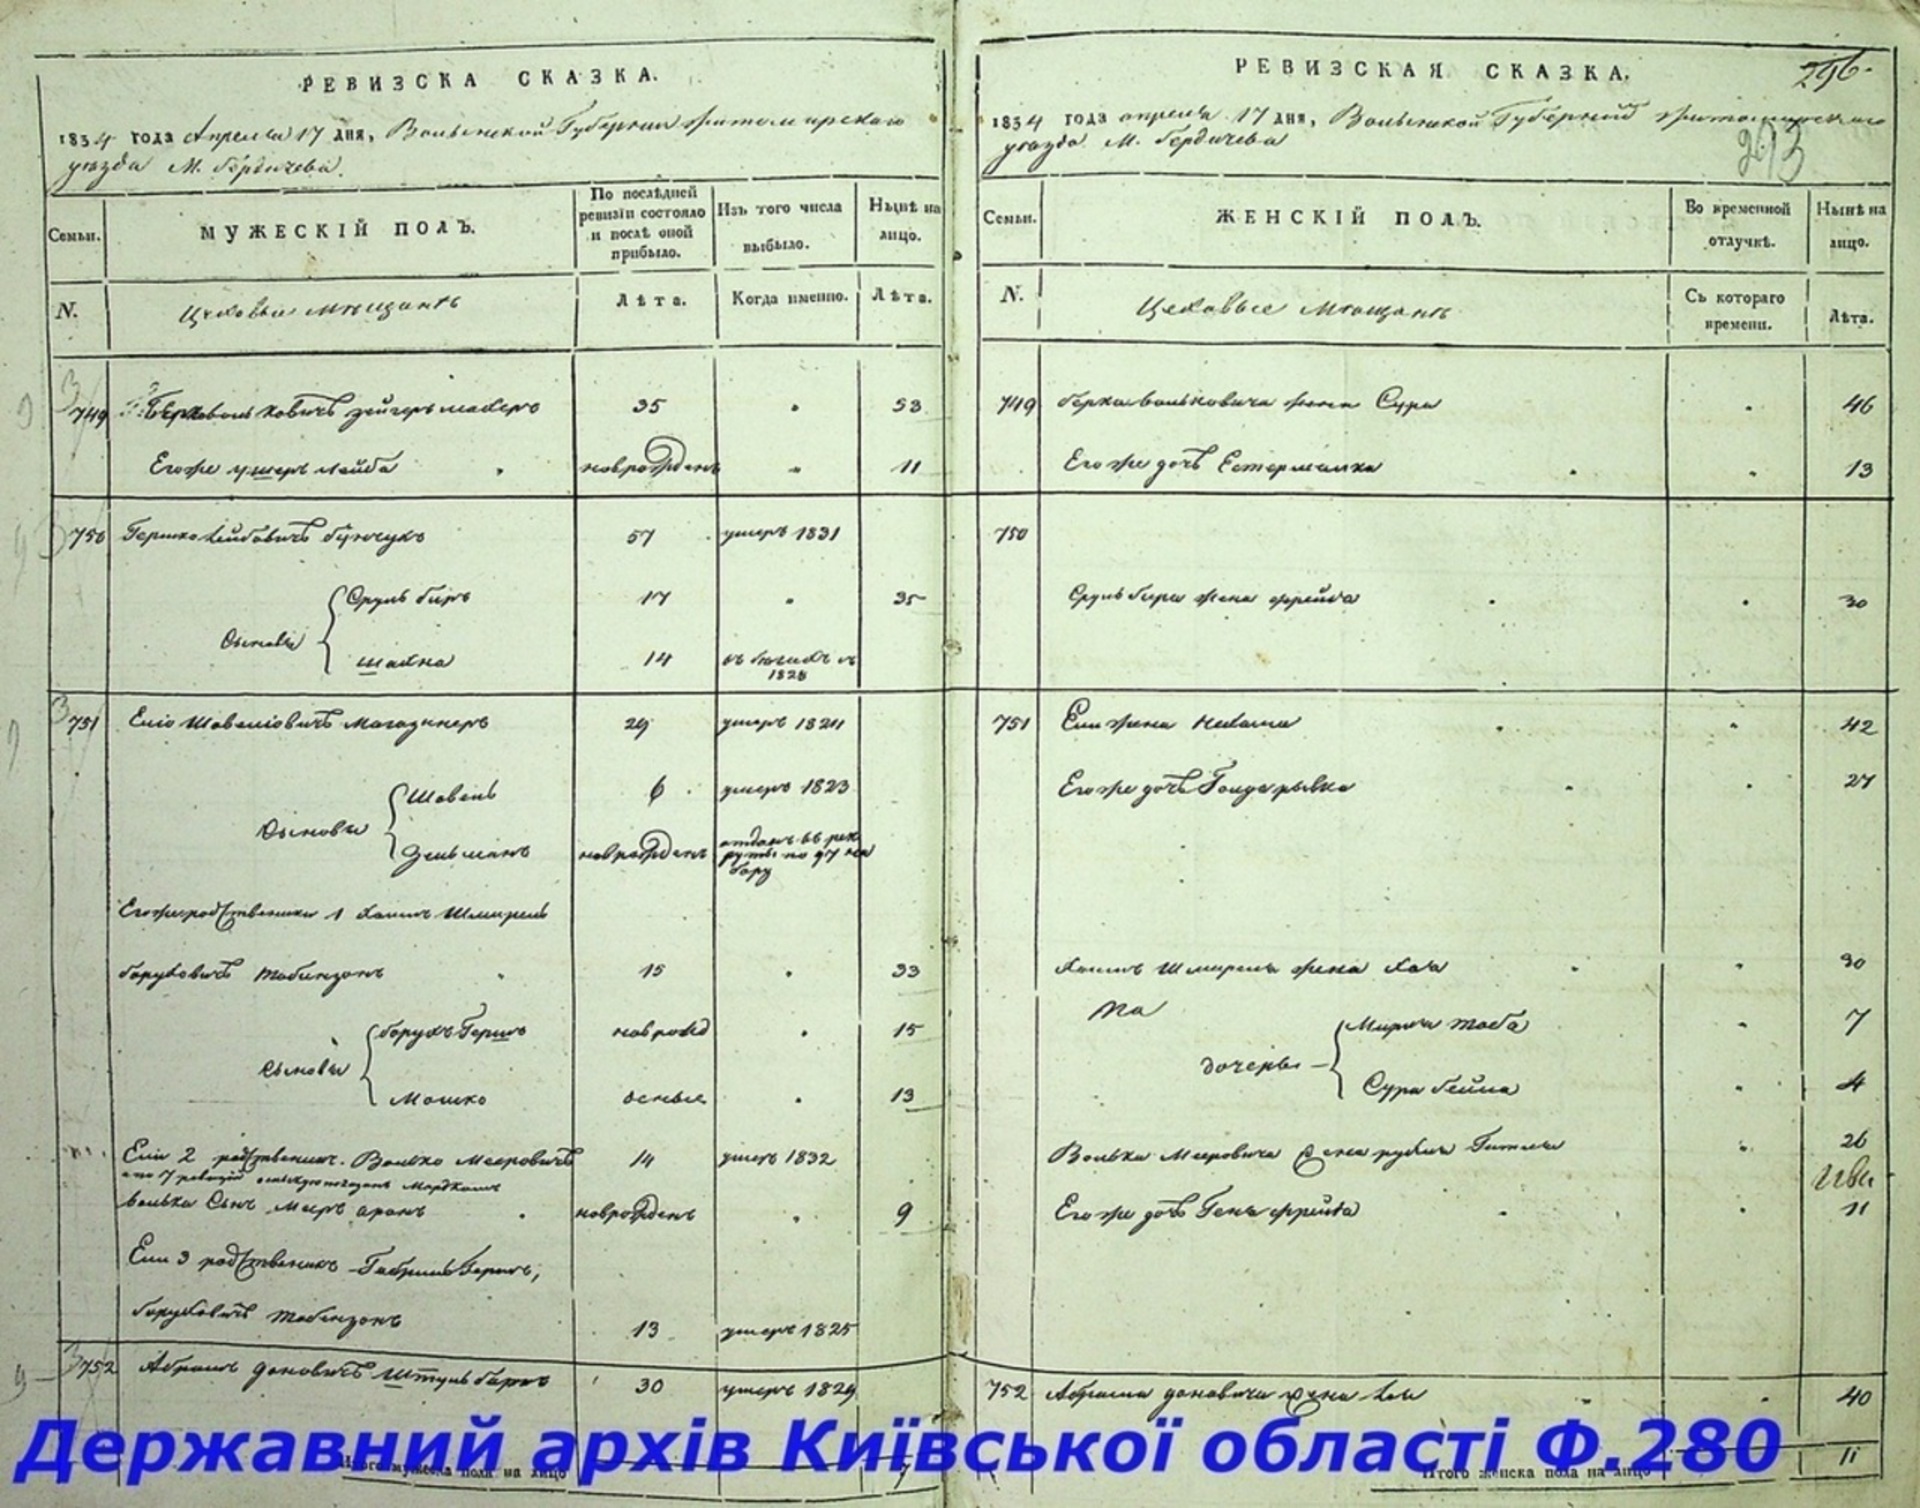 РЕВИЗСКА СКАЗКА.
1834 года Апреля 17 дня, Волынской Губернии Житомирскаго
уезда М. Бердичева.
Семьи.
МУЖЕСКІЙ ПОЛЪ.
По послѣдней ревизіи состояло и послѣ оной прибыло.
Изъ того числа выбыло.
Нынѣ на лицо.
N.
Цеховые мещане
Лѣта.
Когда именно.
Лѣта.
749 Берко Вольковичъ Зейгермахеръ 35 53
Егоже Ушеръ Лейба новорожденъ 11
750 Гершко Лейбовичъ 57 умеръ 1831
Сыновья
Сруль Беръ 17 35
Шахна 14 въ бегахъ с 1828
751 Елю Шовеліовичъ Магазинеръ 29 умеръ 1824
Сыновья
Шовель 6 умеръ 1823
Зельманъ новорожденъ отданъ въ рекруты по 97 набору
Егоже родственники 1 Хаимъ Шмерель
Боруховичъ Табензонъ 15 33
Сыновья
Борухъ Гершъ новорожд 15
Мошко осные 13
Ели 2 родственникъ Волько Мееровичъ 14 умеръ 1832
по 7 ревизіи
Волька Сынъ Мееръ Аронъ новорожденъ 9
Ели 3 родственникъ Габриль Гершъ,
Боруховичъ Табензонъ 13 умеръ 1825
752 Абрамъ Доновичъ 30 умеръ 1829
Итого мужеска пола на лицо 7
РЕВИЗСКАЯ СКАЗКА.
296.
1834 года апреля 17 дня, Волынской Губерніи Житомирскаго
уезда М. Бердичева
293
Семьи.
ЖЕНСКІЙ ПОЛЪ.
Во временной отлучкѣ.
Нынѣ на лицо.
N.
Цеховые Мещане
Съ котораго времени.
Лѣта.
749 Берка Вольковича жена Сура 46
Егоже дочь Естермалка 13
750
Сруль Бера жена Фрейда 30
751 Ели жена Нехама 42
Егоже дочь 27
Хаимъ Шмереля жена Хая 30
дочери
Мирля Тоба 7
Сура Бейла 4
Волька Меровича жена Гитля 26
Егоже дочь Геня Фрейда 11
752 Абрама доновича жена Лея 40
Итого женска пола на лицо 11
Державний архів Київської області Ф.280